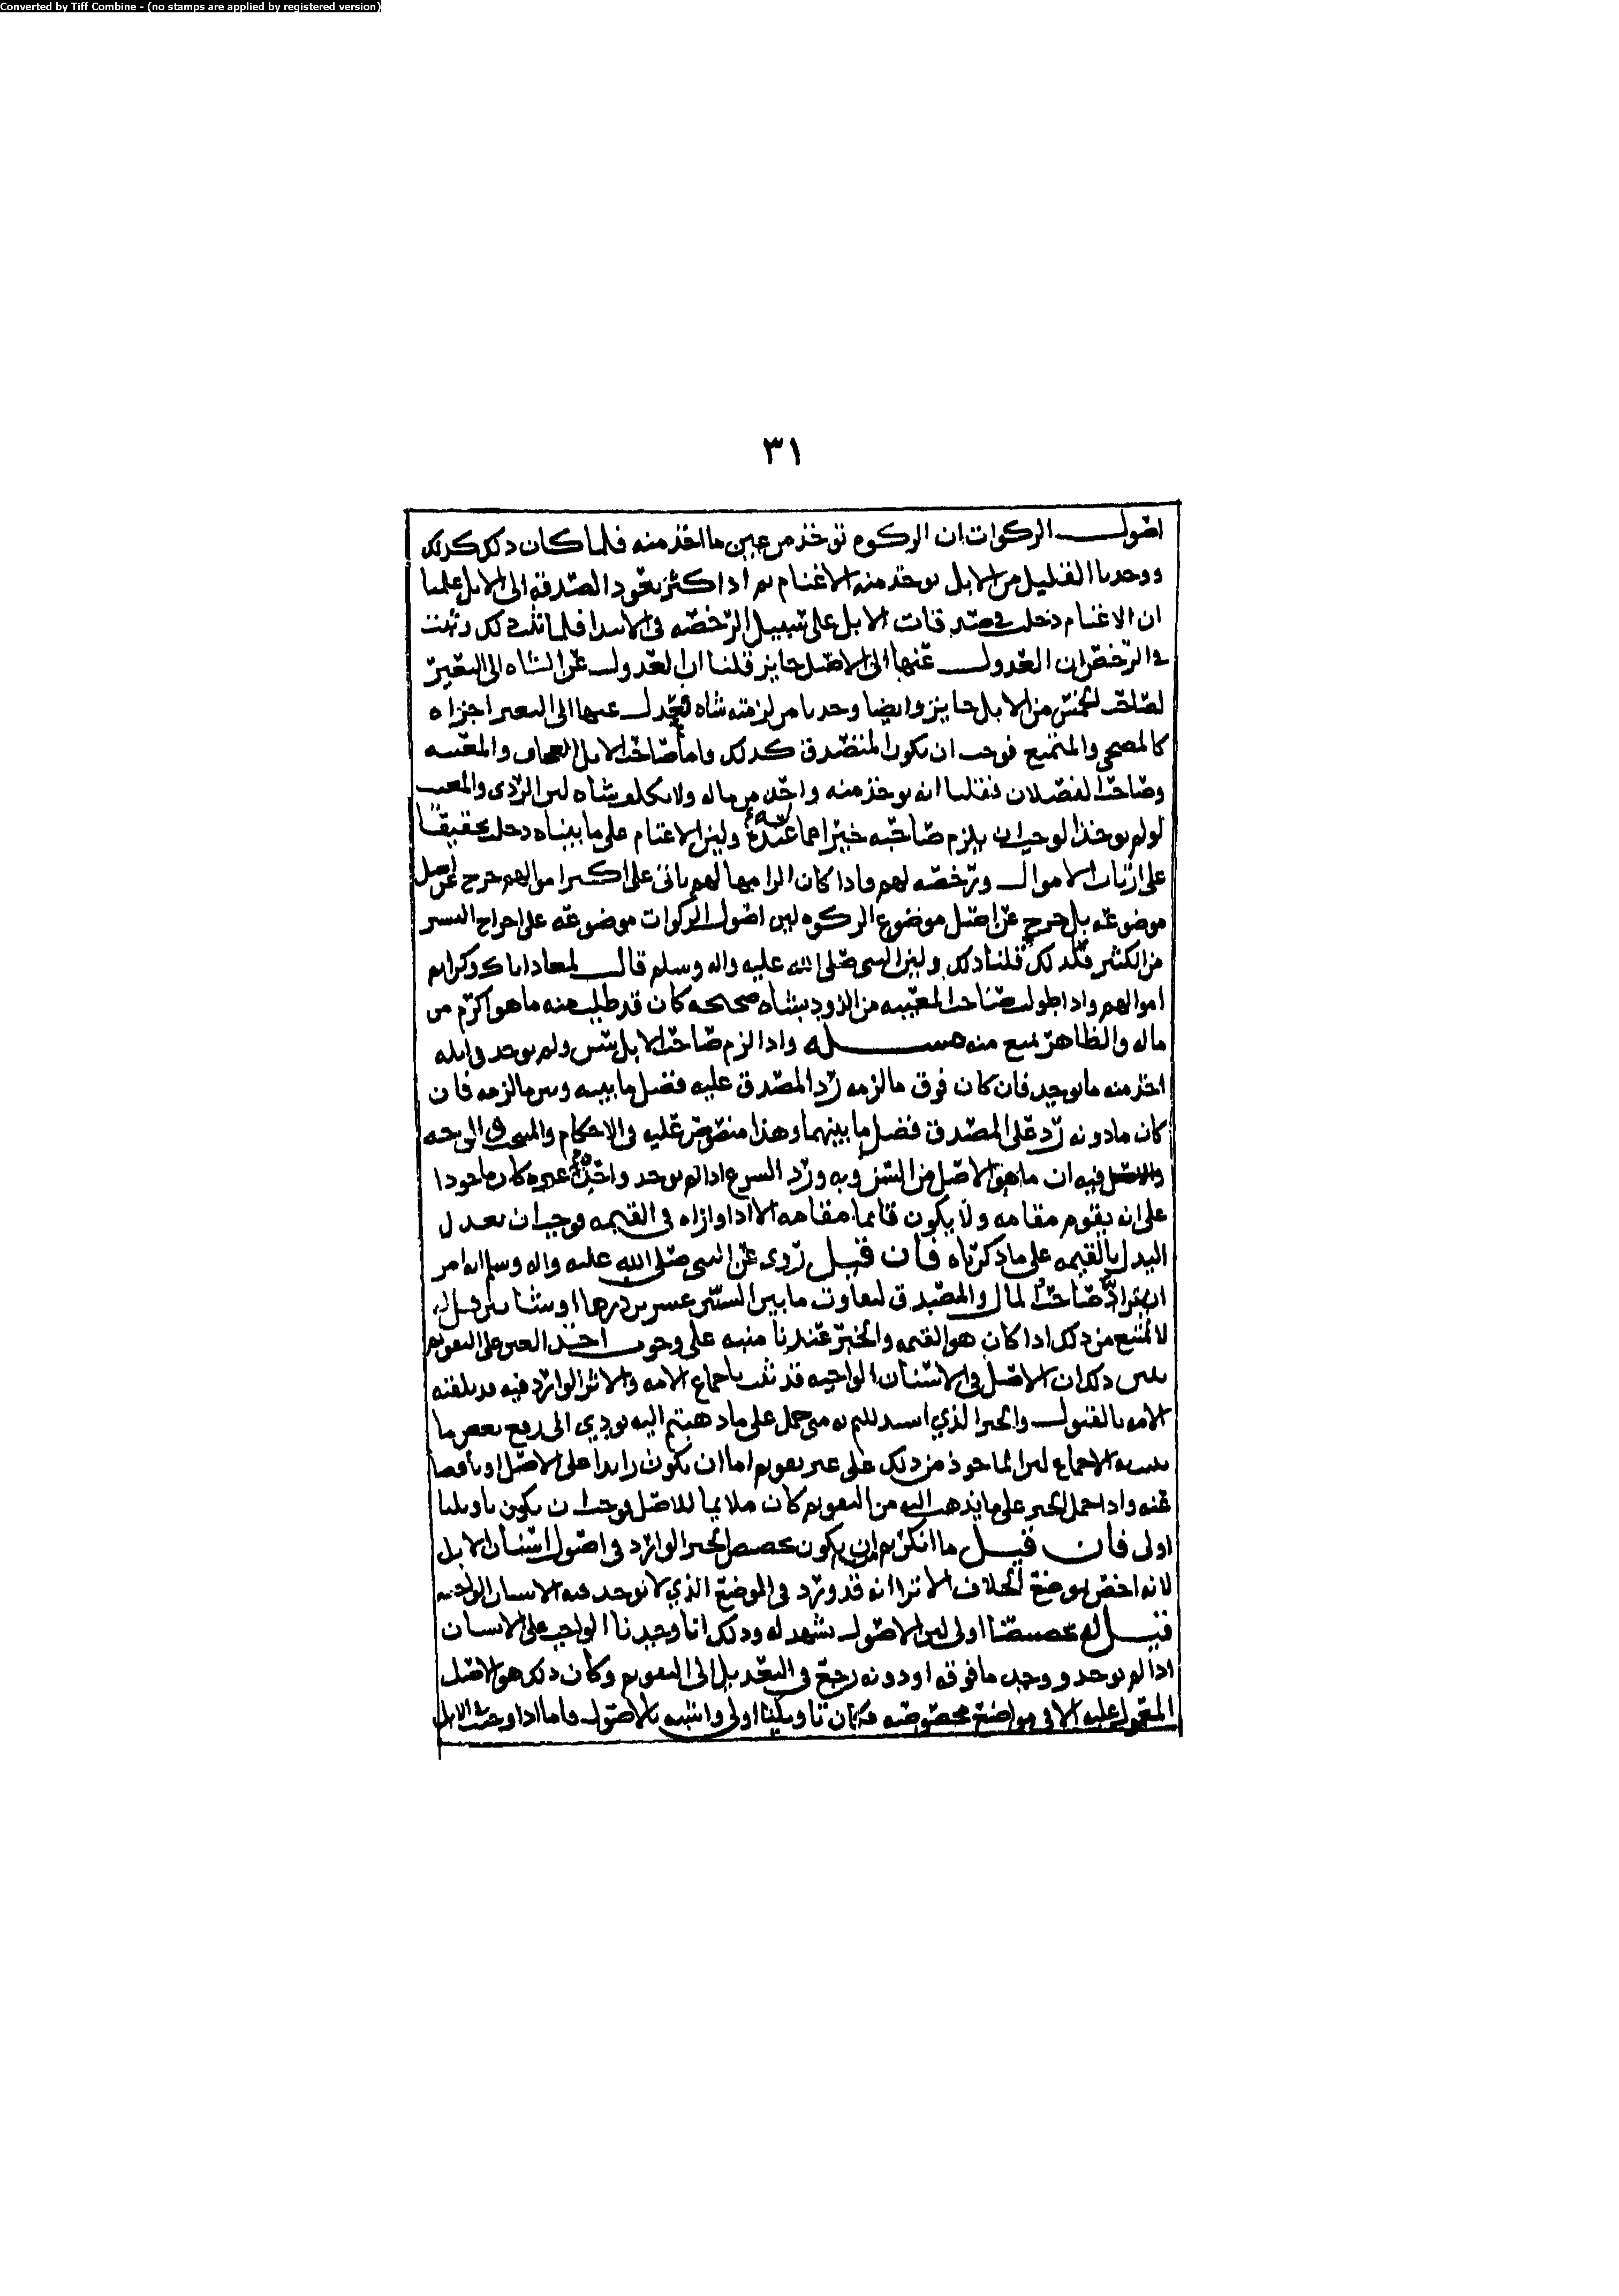 Converted by Tiff Combine - (no stamps are applied by registered version)
٣١
اصول الزكوات ان الزكوه توخذ من عين ما اخذ منه فلما كان ذلك كذلك
ووجدنا القليل من الابل يوخذ منه الاغنام ثم اذا كثر تعود الصدقه الى الابل علمنا
ان الاغنام دخلت في صدقات الابل على سبيل الرخصه في الابتدا فلما ثبت ذلك وثبت
في الرخص ان العدول عنها الى الاصل جايز قلنا ان العدول عن الشاه الى البعير
لصاحب الخمس من الابل جايز وايضا وجدنا من لزمته شاه فعدل عنها الى البعير اجزاه
كالمضحي والمتمتع فوجب ان يكون المتصدق كذلك واما صاحب الابل العجاف والمعيبه
وصاحب الفصلان فقلنا انه يوخذ منه واحد من ماله ولا يكلف شاه لان الردي والمعيب
لو لم يوخذ لوجب ان يلزم صاحبه خيرا مما عنده ولان الاغنام على ما بيناه دخلت تخفيفا
على ارباب الاموال وترخصه لهم فاذا كان الزامها لهم ياتي على اكثر اموالهم خرج عن اصل
موضوعه بل خرج عن اصل موضوع الزكوه لان اصول الزكوات موضوعه على اخراج اليسير
من الكثير فلذلك قلنا ذلك ولان النبي صلى الله عليه واله وسلم قال لمعاذ اياك وكرايم
اموالهم واذا طولب صاحب المعيبه من الذود بشاه صحيحه كان قد طلب منه ما هو اكرم من
ماله والظاهر يمنع منه مسله واذا لزم صاحب الابل سن ولم يوجد في ابله
اخذ منه ما يوجد فان كان فوق ما لزمه رد المصدق عليه فضل ما بينه وبين ما لزمه فان
كان ما دونه رد على المصدق فضل ما بينهما وهذا منصوص عليه في الاحكام والمنتخب
والاصل فيه ان ما هو الاصل من السن وبه ورد الشرع اذا لم يوجد واخذ غيره كان ماخوذا
على انه يقوم مقامه ولا يكون قايما مقامه الا اذا وازاه في القيمه فوجب ان يعدل
البدل بالقيمه على ما ذكرناه فان قيل روي عن النبي صلى الله عليه واله وسلم انه امر
ان يتراد صاحب المال والمصدق لتفاوت ما بين السنين عشرين درهما او شاتين قيل له
لا نمتنع من ذلك اذا كان هو القيمه والخبر عندنا منبه على وجوب اخذ الغير على التقويم
يبين ذلك ان الاصل في الاسنان الواجبه قد ثبت باجماع الامه والاثر الوارد فيه قد تلقته
الامه بالقبول والخبر الذي استدللتم به متى حمل على ما ذهبتم اليه يودي الى رفع بعض ما
يثبته الاجماع لان الماخوذ من ذلك على غير تقويم اما ان يكون زايدا على الاصل او ناقصا
عنه واذا حمل الخبر على ما يذهب اليه من التقويم كان ملايما للاصل فوجب ان يكون تاويلنا
اولى فان قيل ما انكرتم ان يكون تخصيص الخبر الوارد في اصول اسنان الابل
لانه اخص بموضع الخلاف الا ترا انه قد ورد في الموضع الذي لا توجد فيه الاسنان الواجبه
قيل له تخصيصنا اولى لان الاصول تشهد له وذلك انا وجدنا الواجب على الانسان
اذا لم يوجد ووجد ما فوقه او دونه رجع في التعديل الى التقويم وكان ذلك هو الاصل
المعول عليه الا في مواضع مخصوصه فكان تاويلنا اولى واشبه بالاصول فاما اذا وجبت في الابل